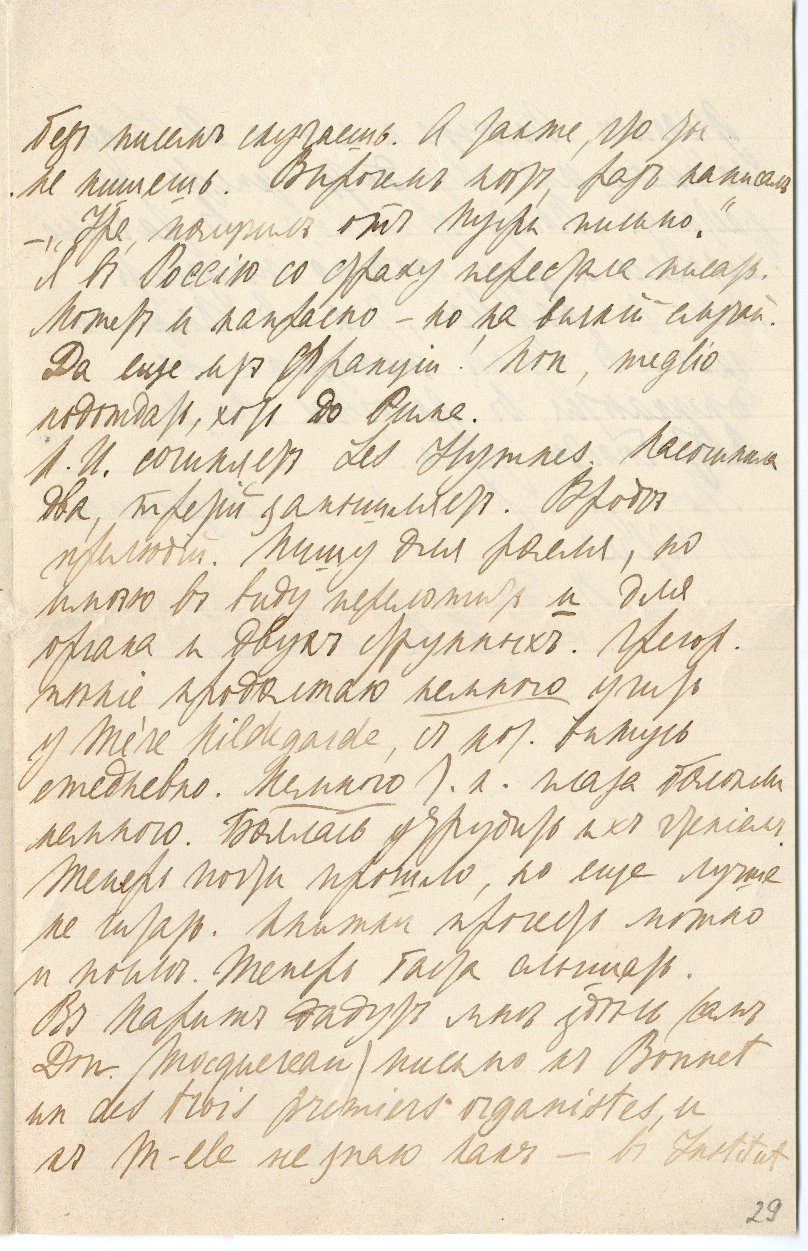 безъ писемъ скучаешь. А также, что ты
не пишешь. Впрочемъ нѣтъ, разъ написалъ
– „Ура, получилъ отъ Пусри письмо."
Я въ Россію со страху перестала писать.
Можетъ и напрасно – но на всякій случай.
Да еще изъ Франціи! Non, meglio
подождать, хоть до Рима.
Л. И. сочиняетъ Les Hymnes. Насочинила
два, третій заношиляетъ. Вродѣ
прелюдій. Пишу для рояля, но
имѣю въ виду переложить и для
органа и двухъ струнныхъ. Грегор.
пѣніе продолжаю немного учить
у Mère Hildegarde, съ ней вижусь
ежедневно. Немного т. к. глаза болѣли
немного. Боялась утрудить ихъ чтеніемъ.
Теперь почти прошло, но еще лучше
не читать. Книжки прочесть можно
и послѣ. Теперь надо слышать.
Въ Парижъ дадутъ мнѣ здѣсь (самъ
Dom. Mocquereau) письмо къ Bonnet
un des trois premiers organistes, и
къ M-elle не знаю какъ – въ Institut
29